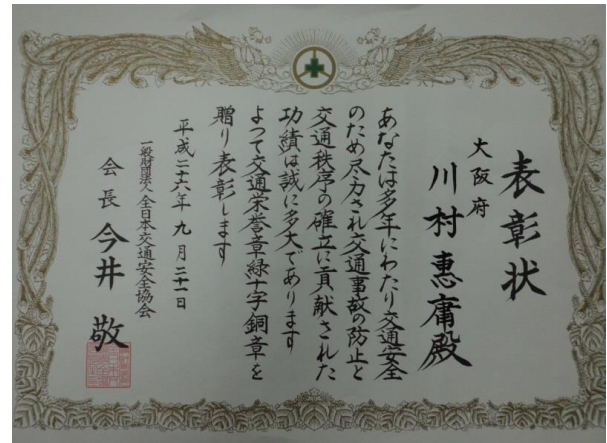 表彰状
大阪府
川村惠庸殿
あなたは多年にわたり交通安全
のため尽力され交通事故の防止と
交通秩序の確立に貢献された
功績は誠に多大であります
よって交通栄誉章緑十字銅章を
贈り表彰します
平成二十六年九月二十一日
一般財団法人全日本交通安全協会
会長今井敬